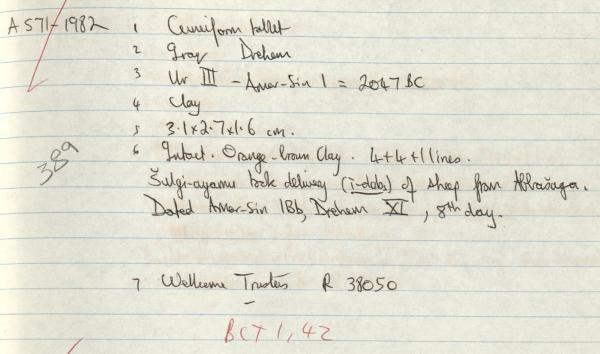 A 571-1982 1 Cuneiform tablet
2 Iraq Drehem
3 Ur III - Amar-Sin 1 = 2047 BC
4 Clay
5 3.1 x 2.7 x 1.6 cm.
6 Intact. Orange-brown Clay. 4+4+1 lines.
389
Šulgi-ayamu took delivery (i-dab₅) of sheep from Abbašaga.
Dated Amar-Sin 1Bb, Drehem XI, 8th day.
7 Wellcome Trustees R 38050
BCT 1, 42